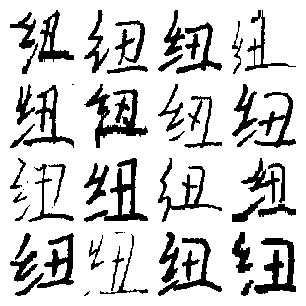 纽纽纽纽
纽纽纽纽
纽纽纽纽
纽纽纽纽